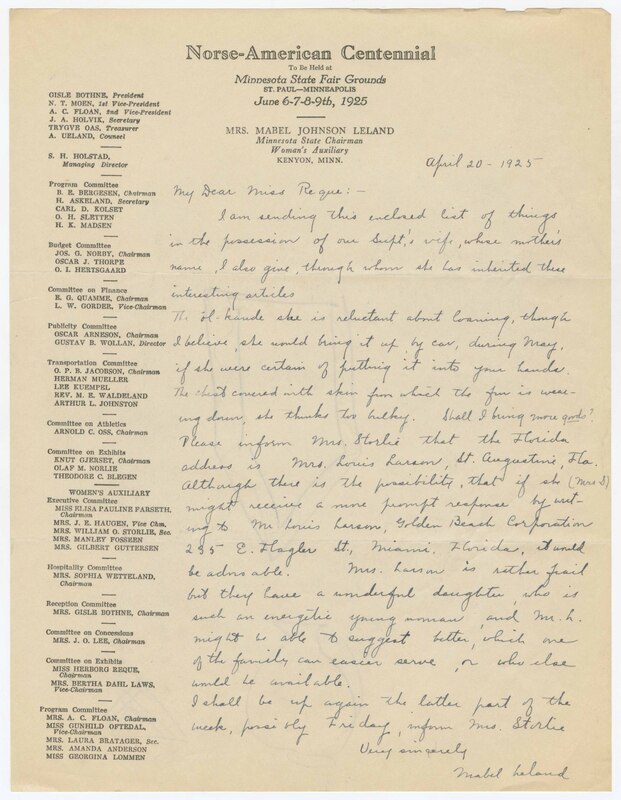 Norse-American Centennial
To Be Held at
Minnesota State Fair Grounds
ST. PAUL—MINNEAPOLIS
June 6-7-8-9th, 1925
MRS. MABEL JOHNSON LELAND
Minnesota State Chairman
Woman's Auxiliary
KENYON, MINN.
GISLE BOTHNE, President
N. T. MOEN, 1st Vice-President
A. C. FLOAN, 2nd Vice-President
J. A. HOLVIK, Secretary
TRYGVE OAS, Treasurer
A. UELAND, Counsel
S. H. HOLSTAD,
Managing Director
Program Committee
B. E. BERGESEN, Chairman
H. ASKELAND, Secretary
CARL D. KOLSET
O. H. SLETTEN
H. K. MADSEN
Budget Committee
JOS. G. NORBY, Chairman
OSCAR J. THORPE
O. I. HERTSGAARD
Committee on Finance
E. G. QUAMME, Chairman
L. W. GORDER, Vice-Chairman
Publicity Committee
OSCAR ARNESON, Chairman
GUSTAV B. WOLLAN, Director
Transportation Committee
O. P. B. JACOBSON, Chairman
HERMAN MUELLER
LEE KUEMPEL
REV. M. E. WALDELAND
ARTHUR L. JOHNSTON
Committee on Athletics
ARNOLD C. OSS, Chairman
Committee on Exhibits
KNUT GJERSET, Chairman
OLAF M. NORLIE
THEODORE C. BLEGEN
WOMEN'S AUXILIARY
Executive Committee
MISS ELISA PAULINE FARSETH,
Chairman
MRS. J. E. HAUGEN, Vice Chm.
MRS. WILLIAM O. STORLIE, Sec.
MRS. MANLEY FOSSEEN
MRS. GILBERT GUTTERSEN
Hospitality Committee
MRS. SOPHIA WETTELAND,
Chairman
Reception Committee
MRS. GISLE BOTHNE, Chairman
Committee on Concessions
MRS. J. O. LEE, Chairman
Committee on Exhibits
MISS HERBORG REQUE,
Chairman
MRS. BERTHA DAHL LAWS,
Vice-Chairman
Program Committee
MRS. A. C. FLOAN, Chairman
MISS GUNHILD OFTEDAL,
Vice-Chairman
MRS. LAURA BRATAGER, Sec.
MRS. AMANDA ANDERSON
MISS GEORGINA LOMMEN
April 20 - 1925
My Dear Miss Reque: -
I am sending this enclosed list of things
in the possession of our Supt's wife, whose mother's
name, I also give, through whom she has inherited these
interesting articles
The öl-kande she is reluctant about loaning, though
I believe, she would bring it up by car, during May,
if she were certain of putting it into your hands.
The chest covered with skin from which the fur is wear-
ing down, she thinks too bulky. Shall I bring more goods?
Please inform Mrs. Storlie that the Florida
address is Mrs. Louis Larson, St. Augustine, Fla.
Although there is the possibility, that if she (Mrs S)
might receive a more prompt response by writ-
ing to Mr Louis Larson, Golden Beach Corporation
235 E. Flagler St., Miami, Florida, it would
be advisable. Mrs. Larson is rather frail
but they have a wonderful daughter, who is
such an energetic young woman, and Mr. L.
might be able to suggest better, which one
of the family can easier serve, or who else
would be available.
I shall be up again the latter part of the
week, possibly Friday, inform Mrs. Storlie
Very sincerely
Mabel Leland